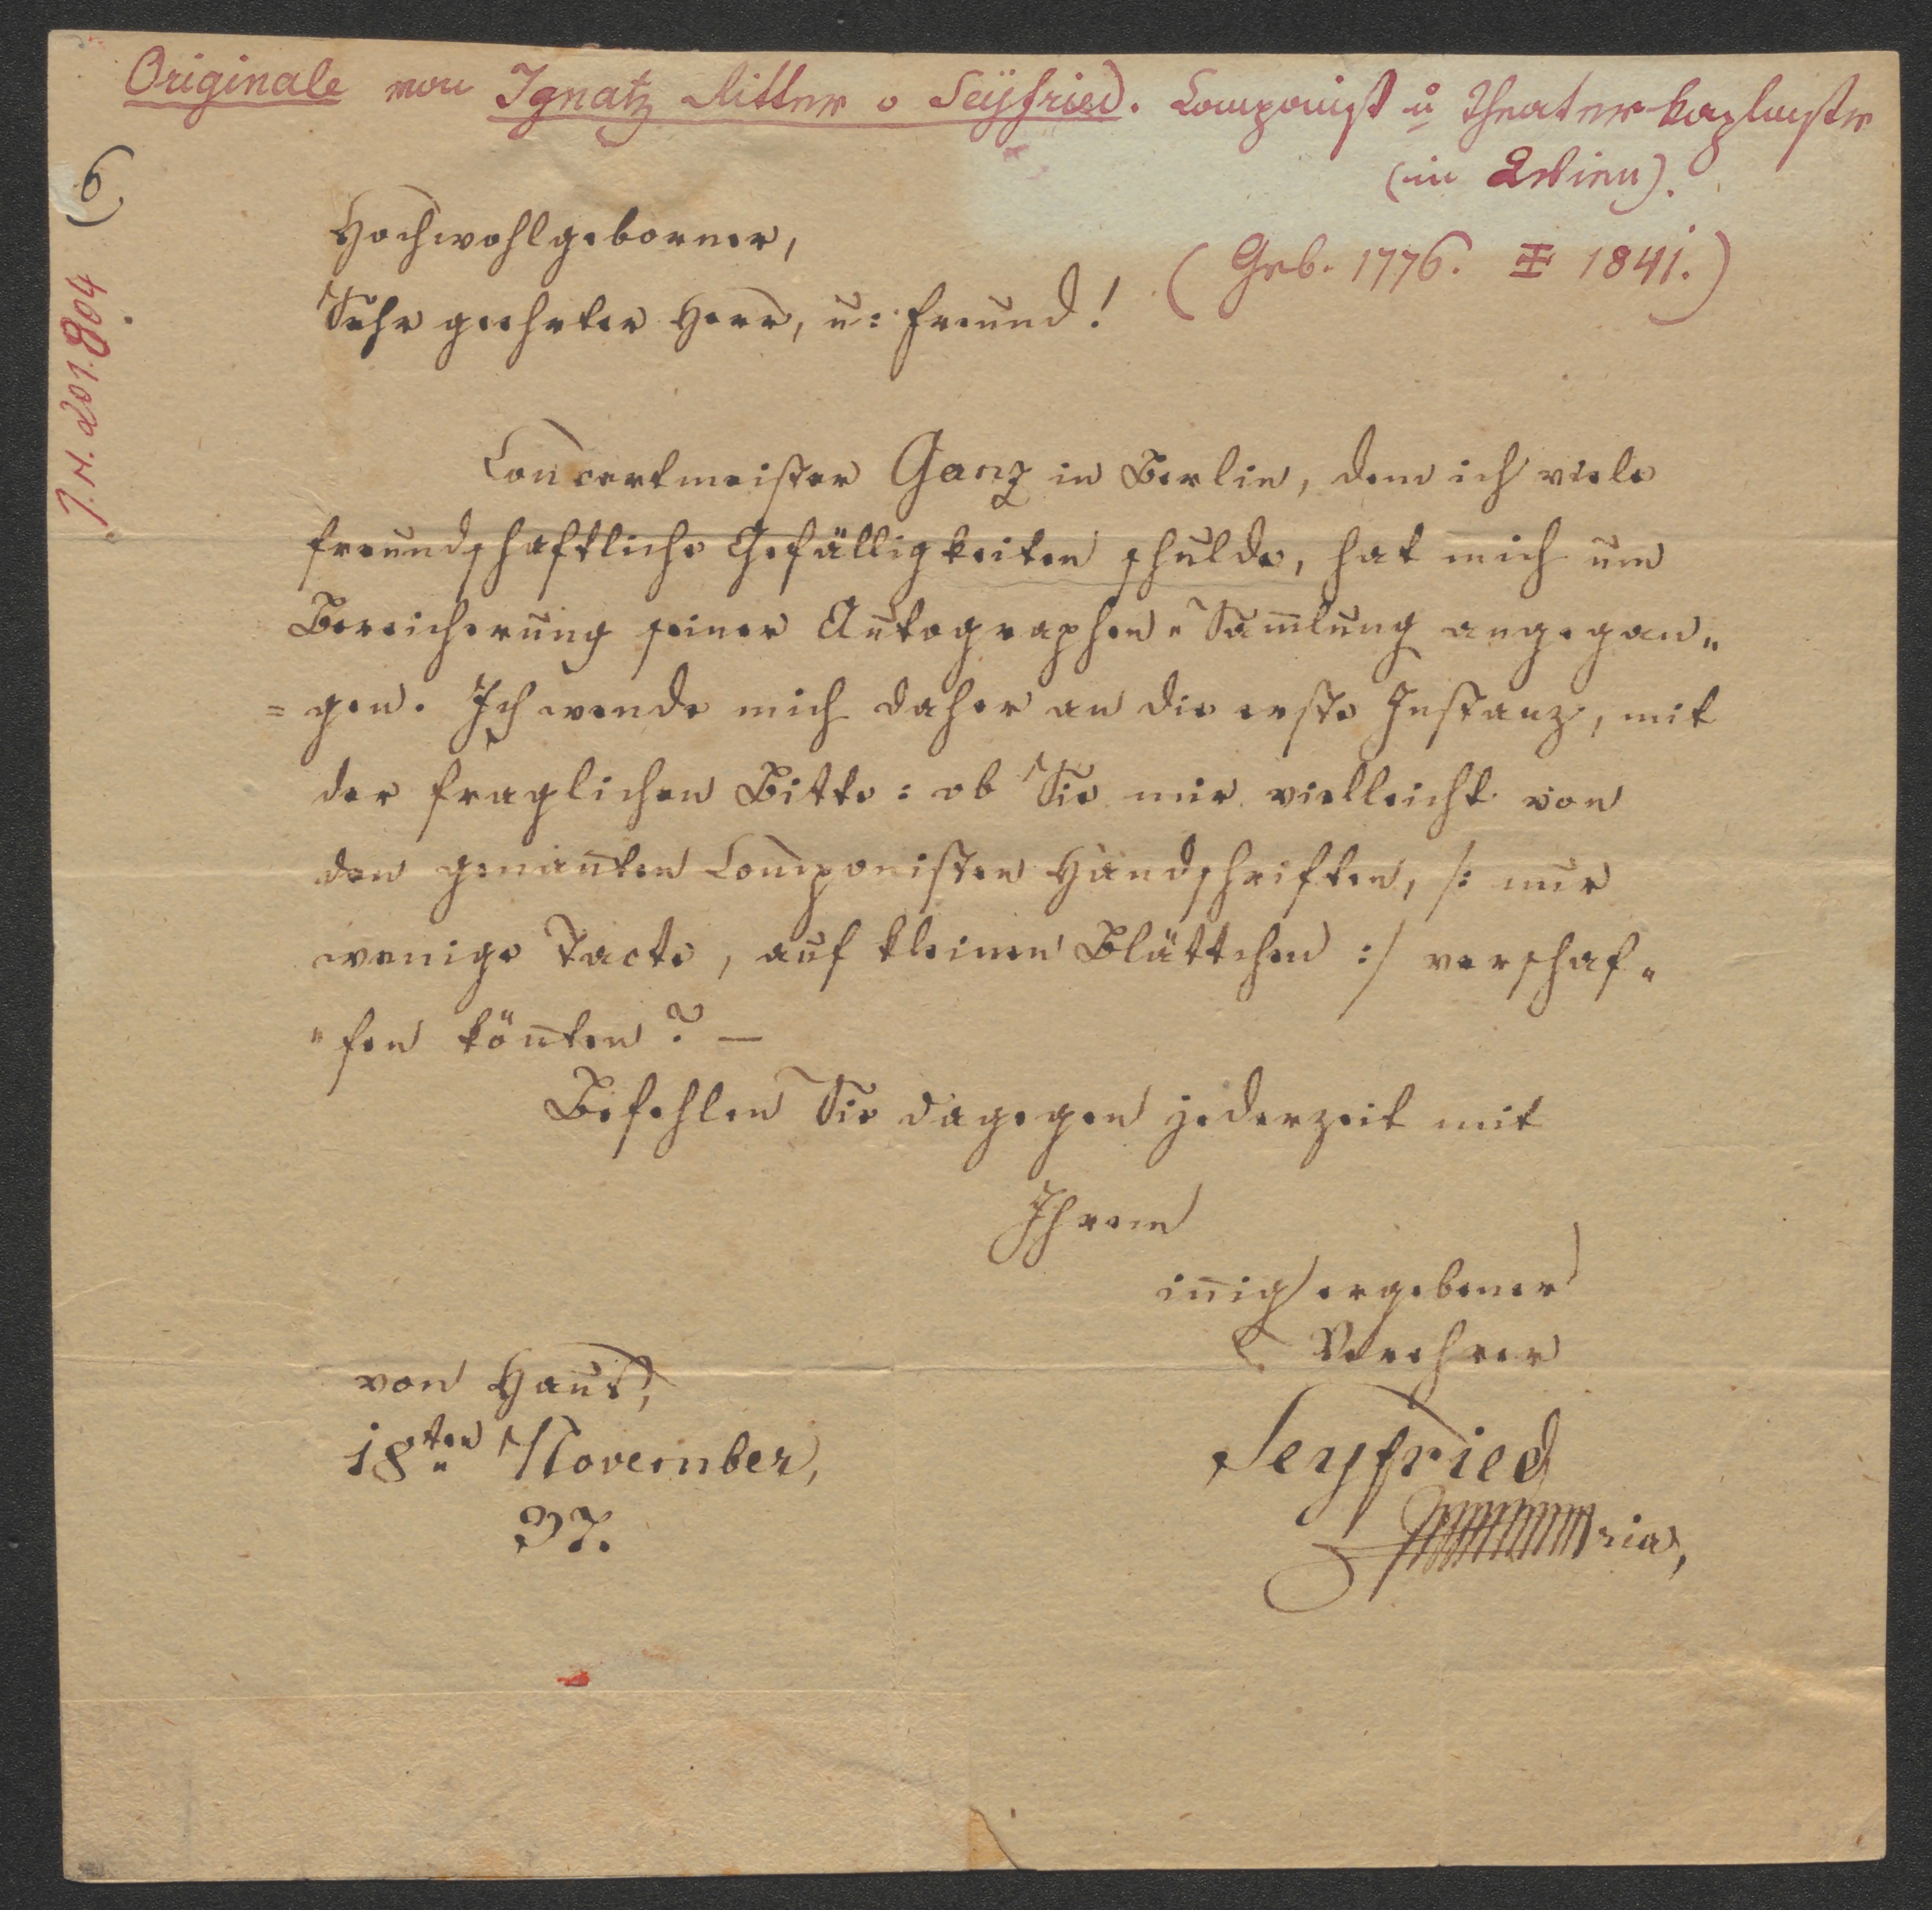 Originale von Ignatz Ritter v Seÿfried. Componist u Theaterkaplmstr
(in Wien).
(Geb. 1776. 1841.)
6
I.N. 201.804
Hochwohlgeborner,
Sehr geehrter Herr, u: Freund!
Concertmeister Ganz in Berlin, dem ich viele
freundschaftliche Gefälligkeiten schulde, hat mich um
Bereicherung seiner Autographen-Sam̄lung angegan-
=gen. Ich wende mich daher an die erste Instanz, mit
der fraglichen Bitte: ob Sie mir vielleicht von
den genan̄ten Componisten Handschriften, /: nur
wenige Tacte, auf kleinen Blättchen :/ verschaf-
-fen kön̄ten? —
Befehlen Sie dagegen jederzeit mit
Ihrem
in̄ig ergebenen
Verehrer
Seyfried
von Haus,
18ten November,
37.